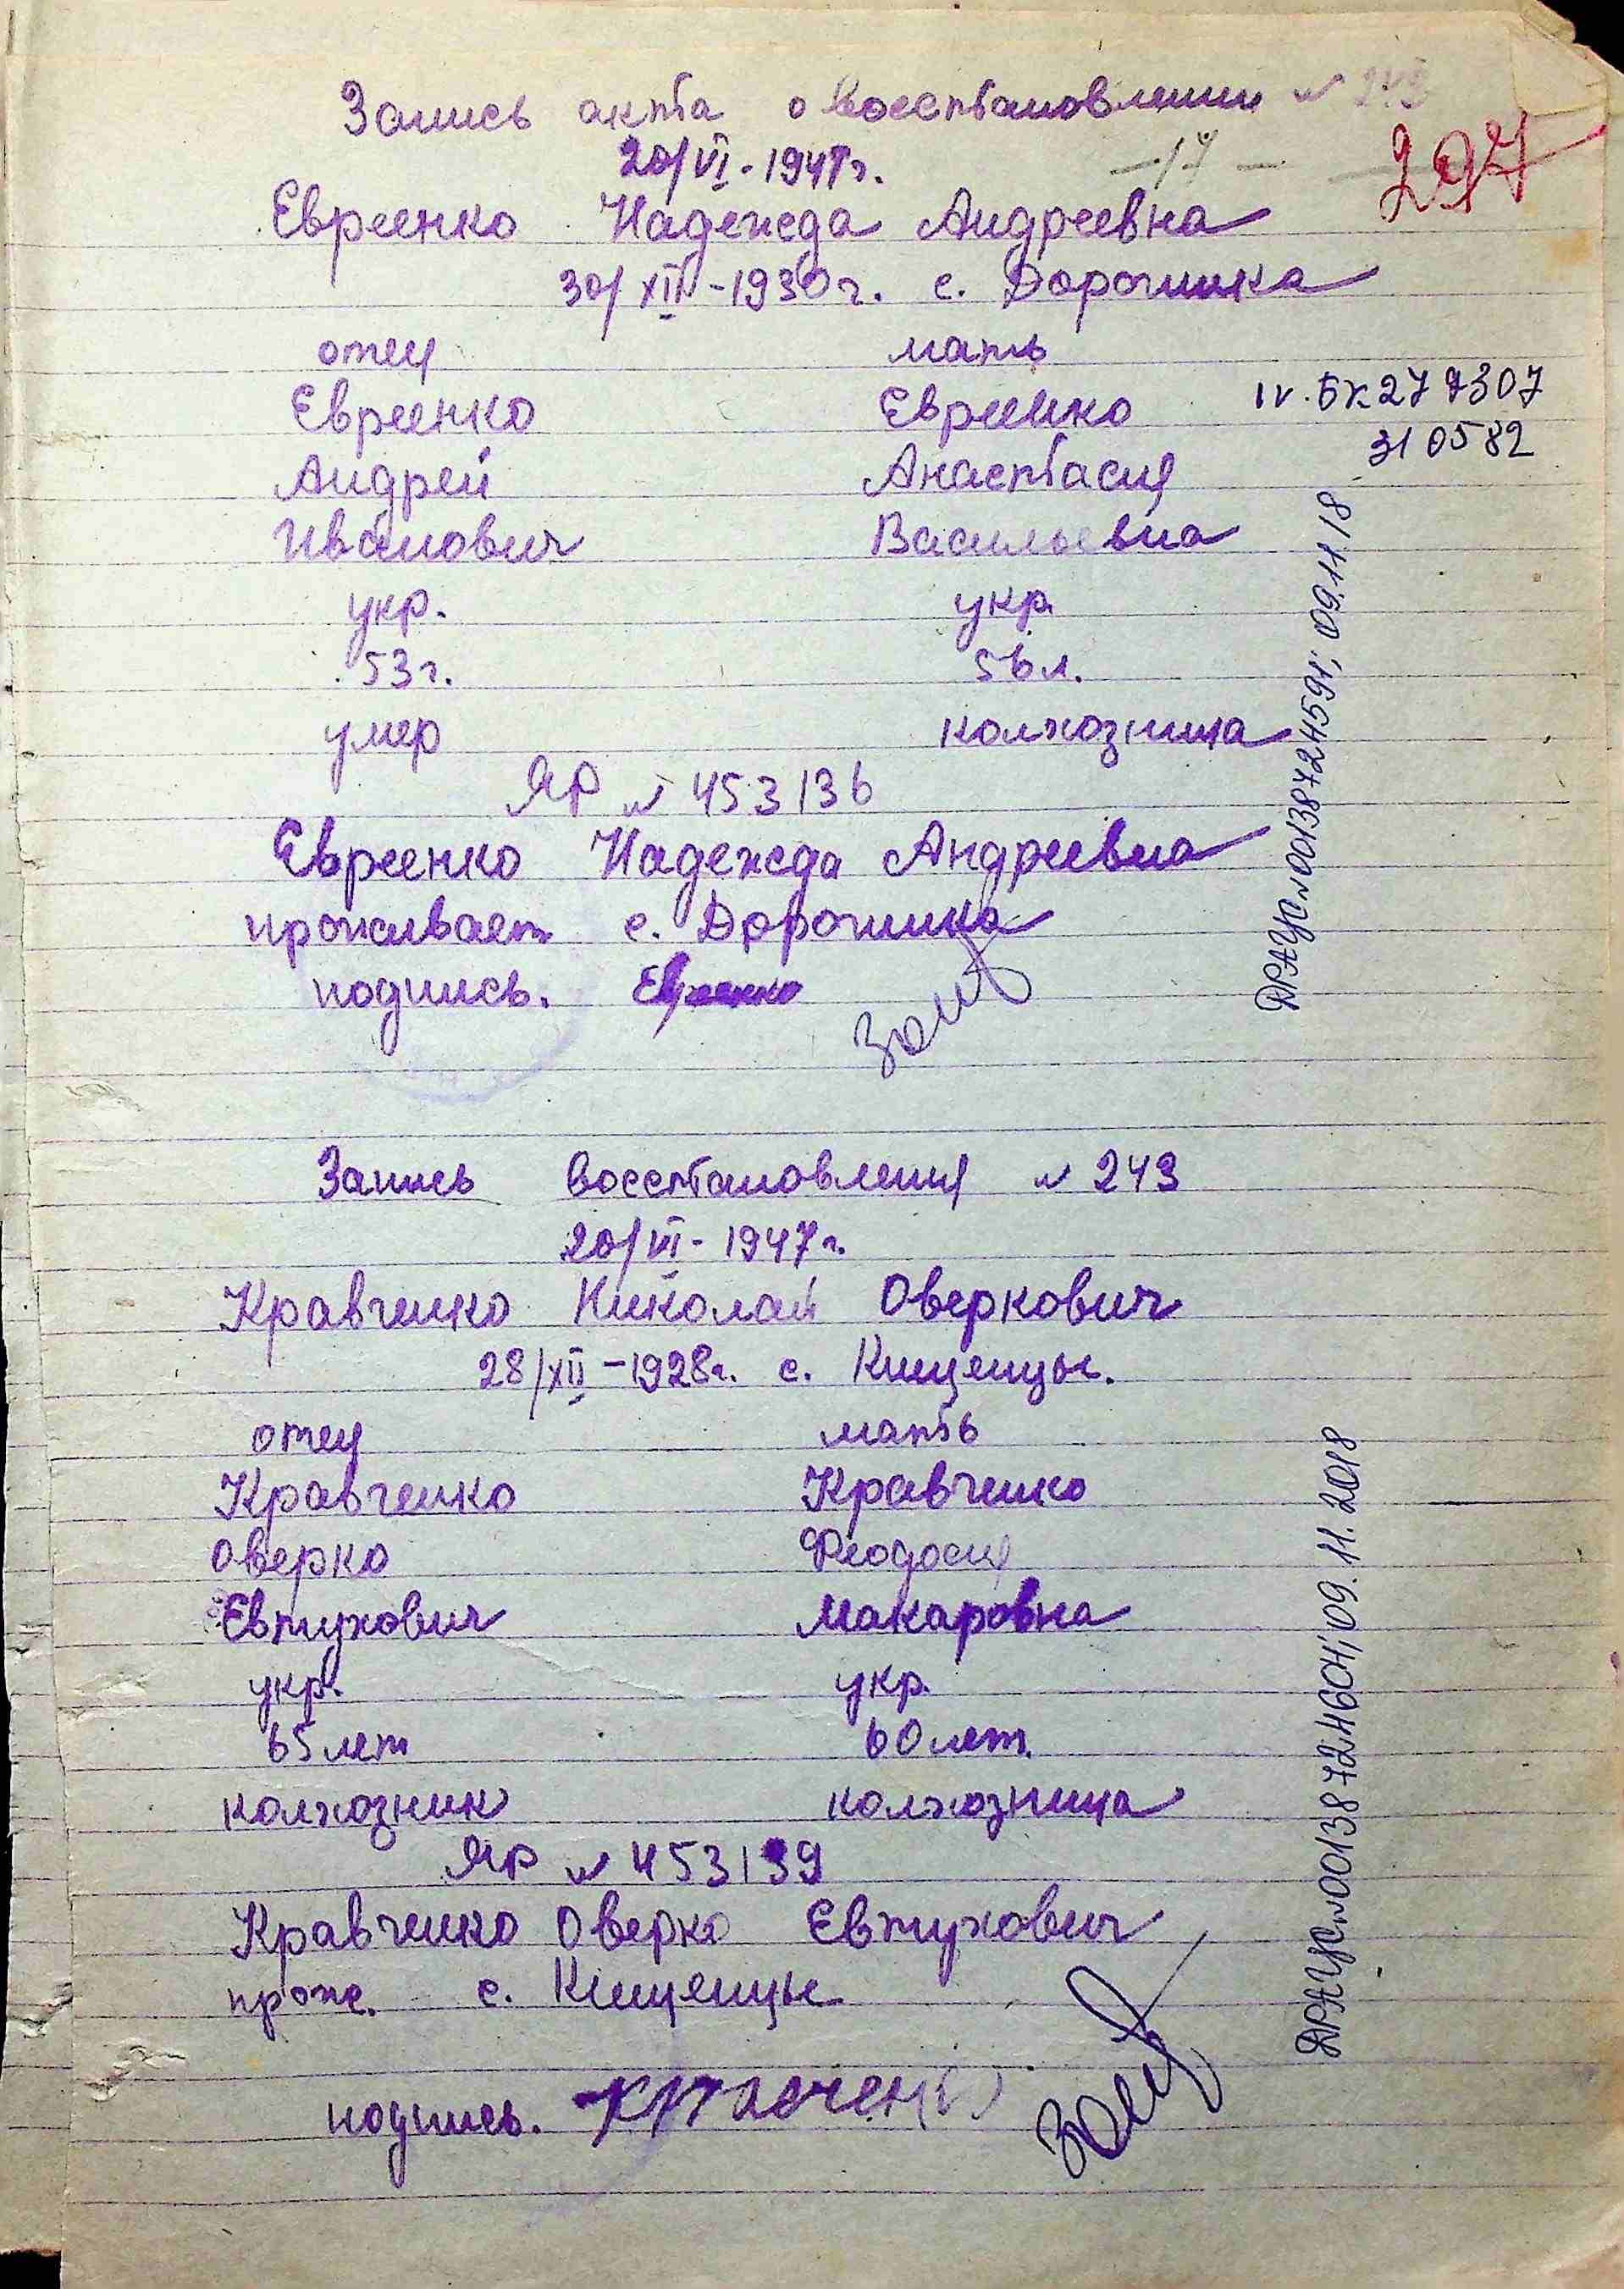 Запись акта о восстановлении № 243
20/VI-1947г. -17-
297
Евреенко Надежда Андреевна
30/XII-1930г. с. Дорогинка
отец мать
Евреенко Евреенко IV.БК 277307
Андрей Анастасия 310582
Иванович Васильевна
укр. укр.
53г. 56л.
умер колхозница
ЯР № 453136
Евреенко Надежда Андреевна
проживает с. Дорогинка
подпись. Евреенко
ДРАЦС №00138724591; 09.11.18
Запись восстановления № 243
20/VI-1947г.
Кравченко Николай Оверкович
28/XII-1928г. с. Кищенцы.
отец мать
Кравченко Кравченко
Оверко Феодосия
Евтухович Макаровна
укр. укр.
65 лет 60 лет.
колхозник колхозница
ЯР № 453139
Кравченко Оверко Евтухович
прож. с. Кищенцы
подпись.
ДРАЦС №00138724604; 09.11.2018